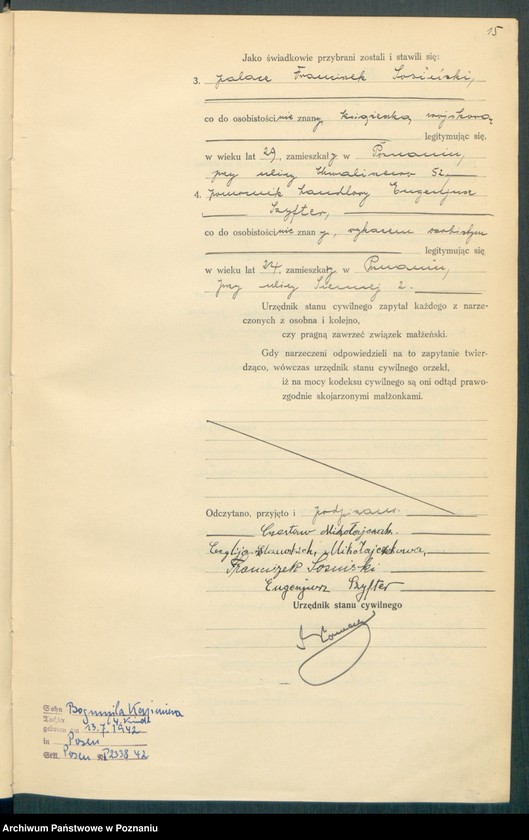 15
Jako świadkowie przybrani zostali i stawili się:
3. palacz Franciszek Sosiński,
co do osobistości nie znany, książeczką wojskową
legitymując się,
w wieku lat 29, zamieszkały w Poznaniu,
przy ulicy 52.
4. pomocnik handlowy Eugenjusz
Szyfter,
co do osobistości nie znany, wykazem osobistym
legitymując się
w wieku lat 24, zamieszkały w Poznaniu,
przy ulicy Siennej 2.
Urzędnik stanu cywilnego zapytał każdego z narze-
czonych z osobna i kolejno,
czy pragną zawrzeć związek małżeński.
Gdy narzeczeni odpowiedzieli na to zapytanie twier-
dząco, wówczas urzędnik stanu cywilnego orzekł,
iż na mocy kodeksu cywilnego są oni odtąd prawo-
zgodnie skojarzonymi małżonkami.
Odczytano, przyjęto i podpisano.
Czesław Mikołajczak.
Mikołajczakowa,
Franciszek Sosiński
Eugenjusz Szyfter
Urzędnik stanu cywilnego
Sohn Bogumila
4. Kind
geboren am 13.7.1942
in Posen
Posen 2338/42
Archiwum Państwowe w Poznaniu